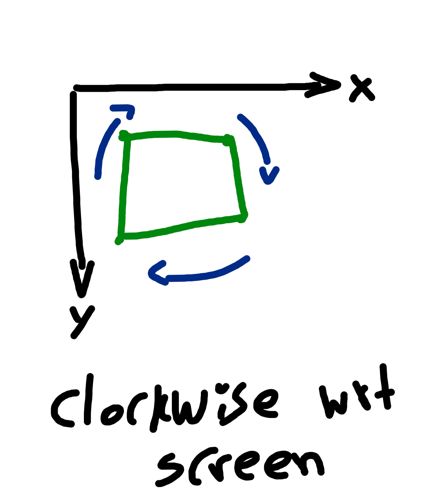 x
y
clockwise wrt
screen